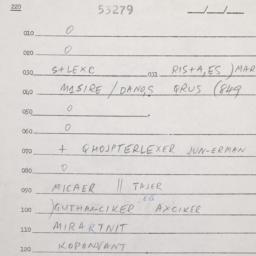 220 53279 __/__/__
010 0
020 0
030 S+LEXC 033 RIS+A,ES ) MAR
040 MASIRE / DANOS GRUS (849
050 0
060 0
070 + GHOJPTERLEXER JUN-ERMAN
080 0
090 MICAER || TAJER
100 )GUTHANCIKER AXCIKER
110 MIRARTNIT
120 KOPONVANT